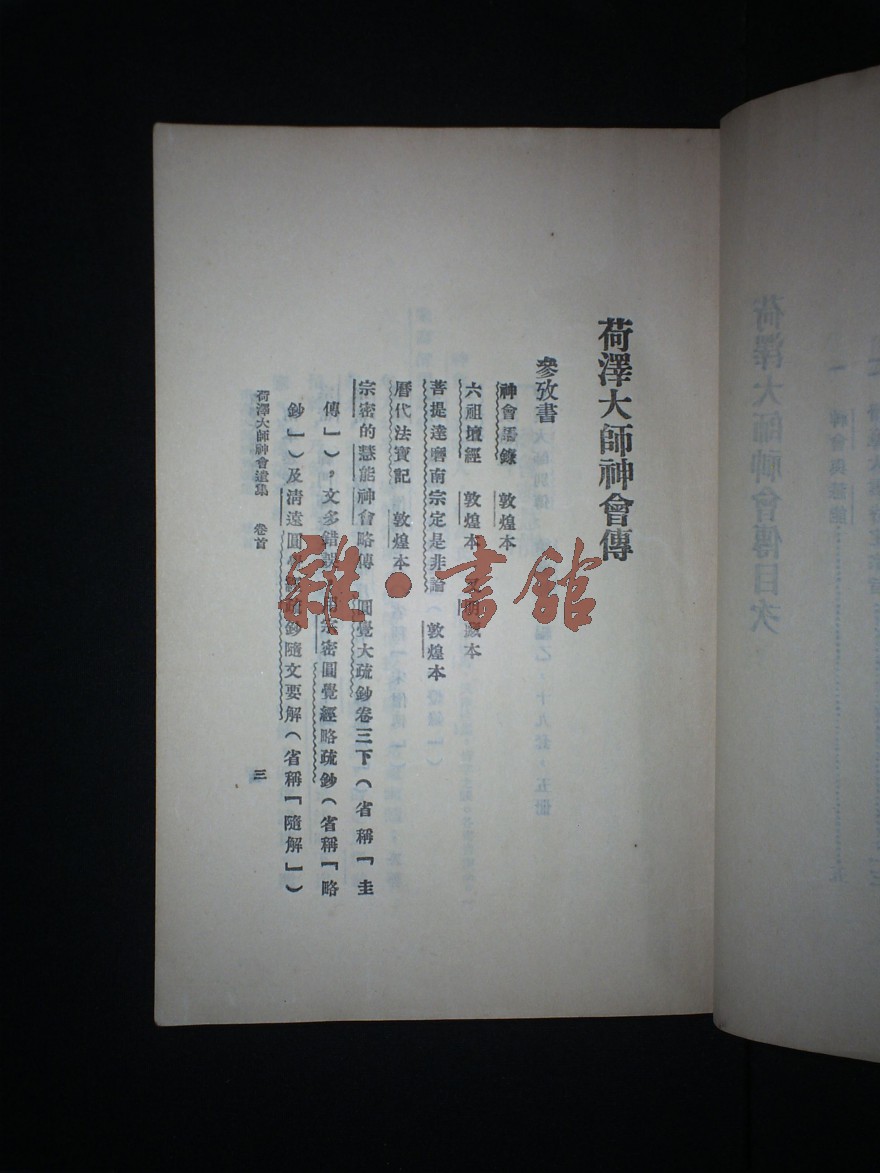 荷澤大師神會傳
參攷書
神會語錄 敦煌本
六祖壇經 敦煌本 明藏本
菩提達磨南宗定是非論（敦煌本
曆代法寶記 敦煌本
宗密的慧能神會略傳 圓覺大疏鈔卷三下（省稱「圭
傳」），文多錯誤 宗密圓覺經略疏鈔（省稱「略
鈔」）及淸遠圓覺 疏鈔隨文要解（省稱「隨解」）
荷澤大師神會遺集 卷首
三
雜·書館